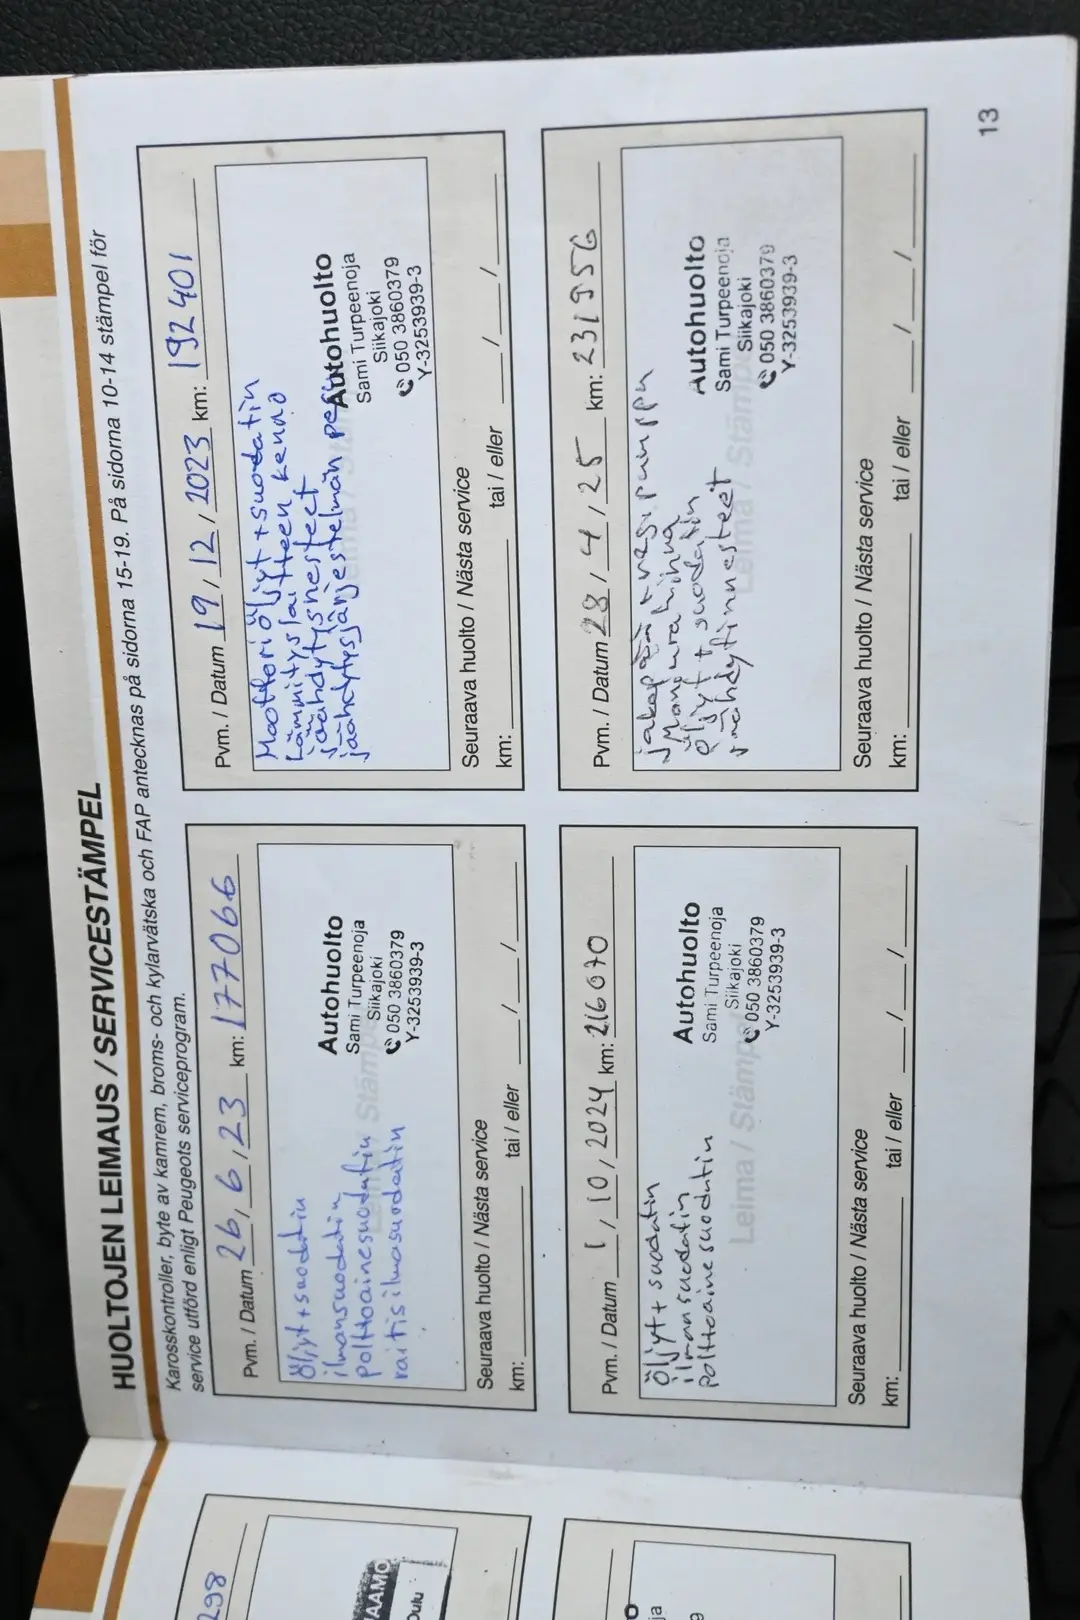 HUOLTOJEN LEIMAUS / SERVICESTÄMPEL
Karosskontroller, byte av kamrem, broms- och kylarvätska och FAP antecknas på sidorna 15-19. På sidorna 10-14 stämpel för
service utförd enligt Peugeots serviceprogram.
Pvm. / Datum 26 / 6 / 23 km: 177066
Öljyt + suodatin
ilmansuodatin
Polttoainesuodatin
raitisilmasuodatin
Leima / Stämpel
Autohuolto
Sami Turpeenoja
Siikajoki
050 3860379
Y-3253939-3
Seuraava huolto / Nästa service
km: tai / eller / /
Pvm. / Datum 19 / 12 / 2023 km: 192401
Moottoriöljyt + suodatin
Lämmityslaitteen kenno
jäähdytysnesteet
jäähdytysjärjestelmän
Autohuolto
Sami Turpeenoja
Siikajoki
050 3860379
Y-3253939-3
Seuraava huolto / Nästa service
km: tai / eller / /
Pvm. / Datum 1 / 10 / 2024 km: 216070
Öljyt + suodatin
ilmansuodatin
polttoainesuodatin
Leima / Stämpel
Autohuolto
Sami Turpeenoja
Siikajoki
050 3860379
Y-3253939-3
Seuraava huolto / Nästa service
km: tai / eller / /
Pvm. / Datum 28 / 4 / 25 km: 231956
jakopää + vesipumppu
Öljyt + suodatin
Leima / Stämpel
Autohuolto
Sami Turpeenoja
Siikajoki
050 3860379
Y-3253939-3
Seuraava huolto / Nästa service
km: tai / eller / /
13
298
AAMO
Oulu
ja
9